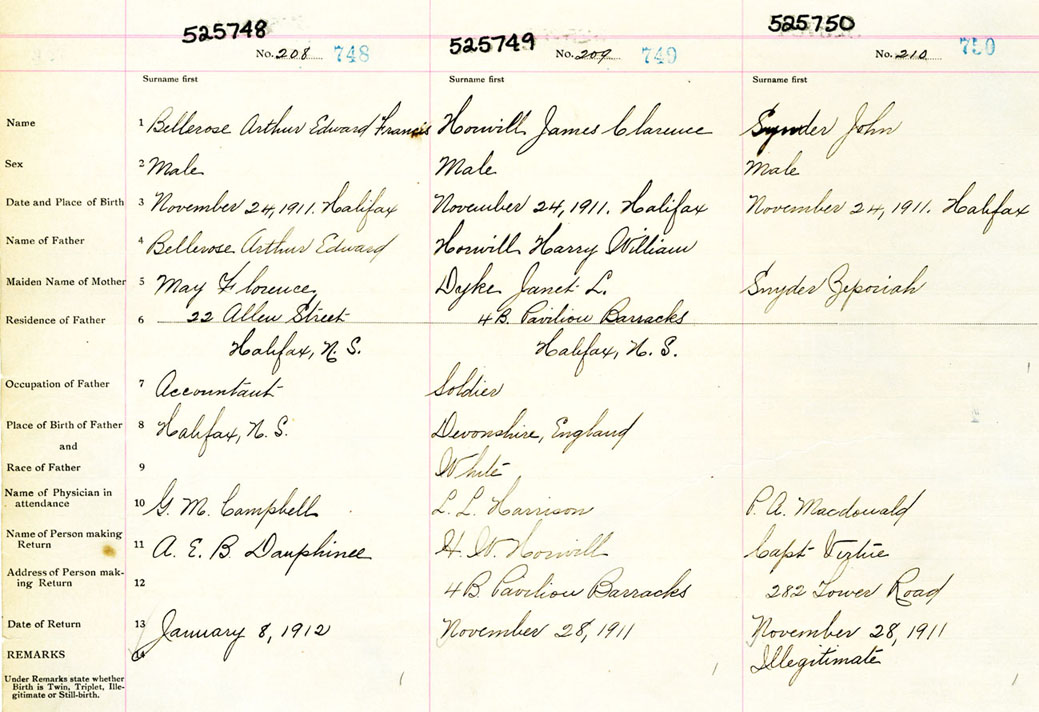 525748 525749 525750
No. 208 748 No. 209 749 No. 210 750
Surname first Surname first Surname first
Name 1 Bellerose Arthur Edward Francis Horwill James Clarence Snyder John
Sex 2 Male Male Male
Date and Place of Birth 3 November 24, 1911. Halifax November 24, 1911. Halifax November 24, 1911. Halifax
Name of Father 4 Bellerose Arthur Edward Horwill Harry William
Maiden Name of Mother 5 May Florence Dyke Janet L. Snyder Zeporiah
Residence of Father 6 22 Allen Street 4 B. Pavilion Barracks
Halifax, N. S. Halifax, N. S.
Occupation of Father 7 Accountant Soldier
Place of Birth of Father 8 Halifax, N. S. Devonshire, England
and
Race of Father 9 White
Name of Physician in
attendance 10 G. M. Campbell L. L. Harrison P. A. Macdonald
Name of Person making
Return 11 A. E. B. Dauphinee H. W. Horwill Capt Virtue
Address of Person mak-
ing Return 12 4 B. Pavilion Barracks 282 Tower Road
Date of Return 13 January 8, 1912 November 28, 1911 November 28, 1911
REMARKS 14 Illegitimate
Under Remarks state whether
Birth is Twin, Triplet, Ille-
gitimate or Still-birth.